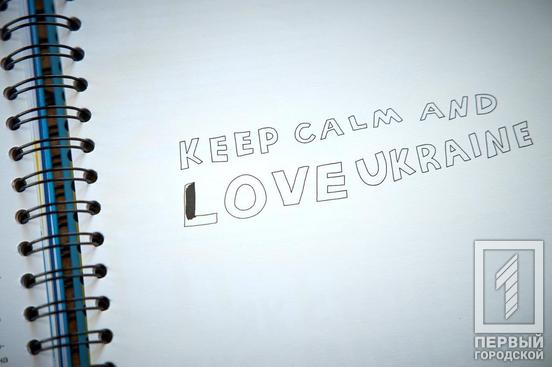 KEEP CALM AND
LOVE UKRAINE
1
ПЕРВЫЙ
ГОРОДСКОЙ